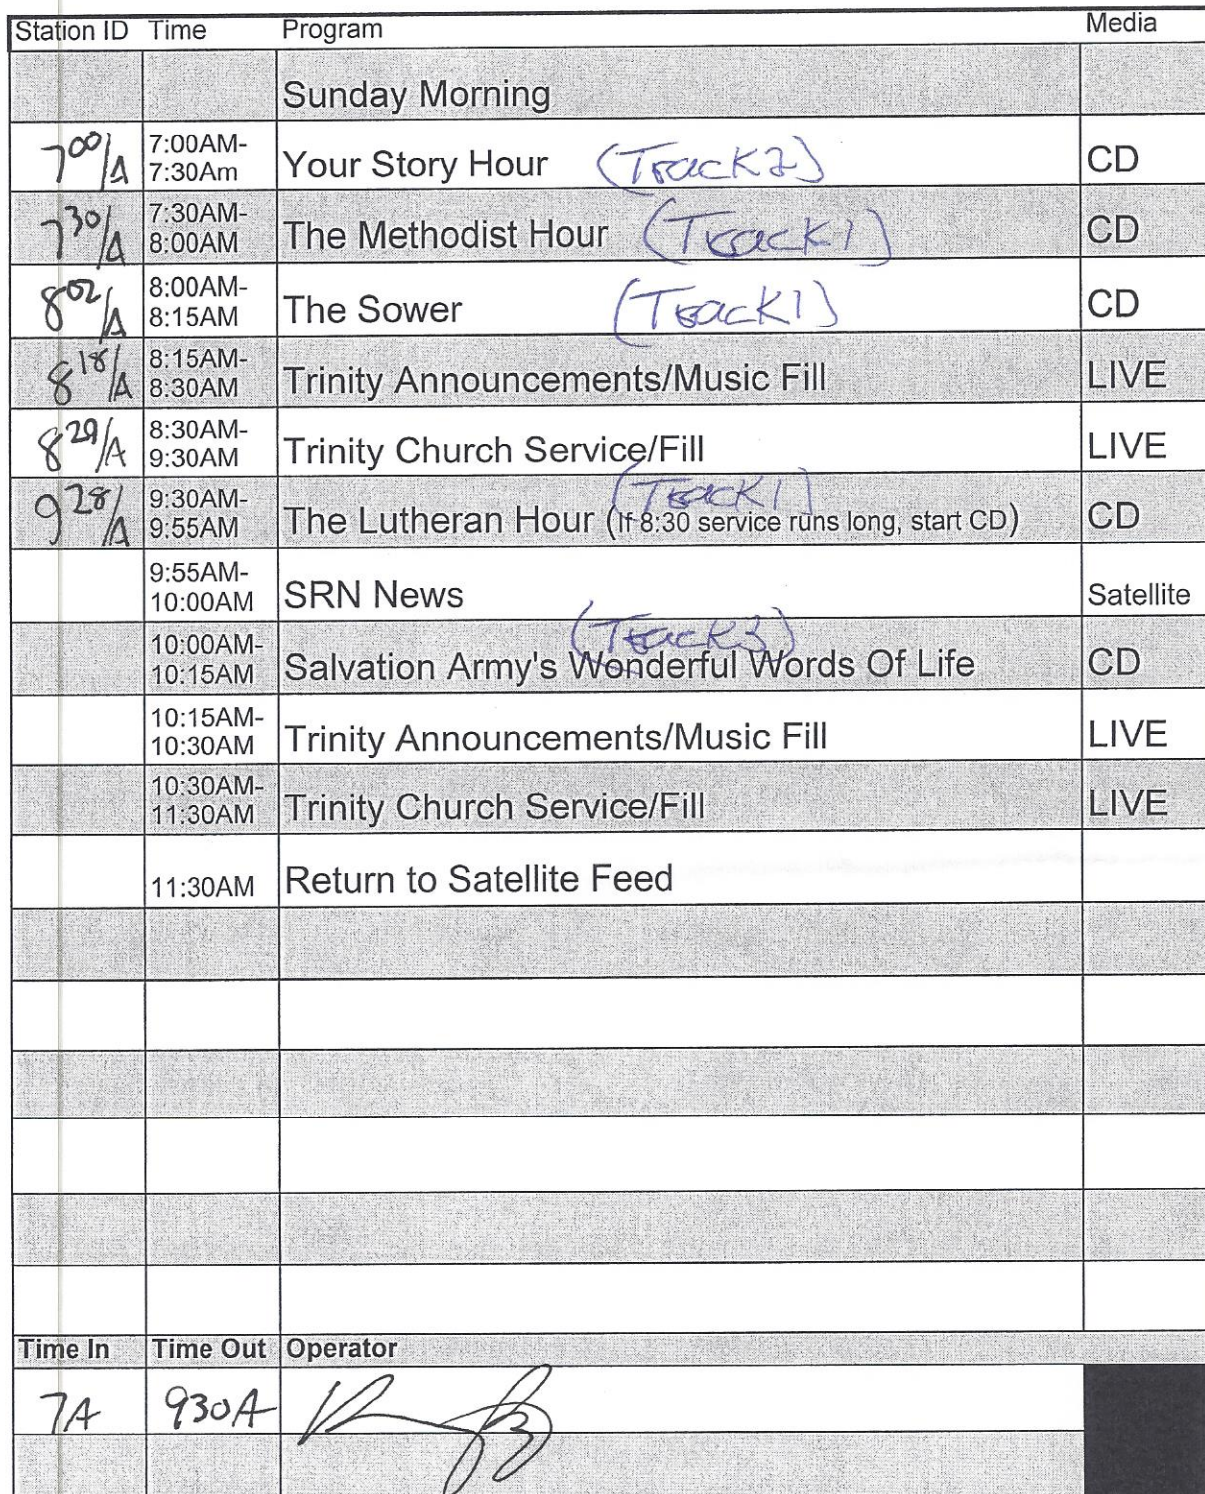 Station ID Time Program Media
Sunday Morning
7:00/A 7:00AM-7:30Am Your Story Hour (Track 2) CD
7:30/A 7:30AM-8:00AM The Methodist Hour (Track 1) CD
8:02/A 8:00AM-8:15AM The Sower (Track 1) CD
8:18/A 8:15AM-8:30AM Trinity Announcements/Music Fill LIVE
8:29/A 8:30AM-9:30AM Trinity Church Service/Fill LIVE
(Track 1)
9:28/A 9:30AM-9:55AM The Lutheran Hour (If 8:30 service runs long, start CD) CD
9:55AM-10:00AM SRN News Satellite
(Track 3)
10:00AM-10:15AM Salvation Army's Wonderful Words Of Life CD
10:15AM-10:30AM Trinity Announcements/Music Fill LIVE
10:30AM-11:30AM Trinity Church Service/Fill LIVE
11:30AM Return to Satellite Feed
Time In Time Out Operator
7A 930A